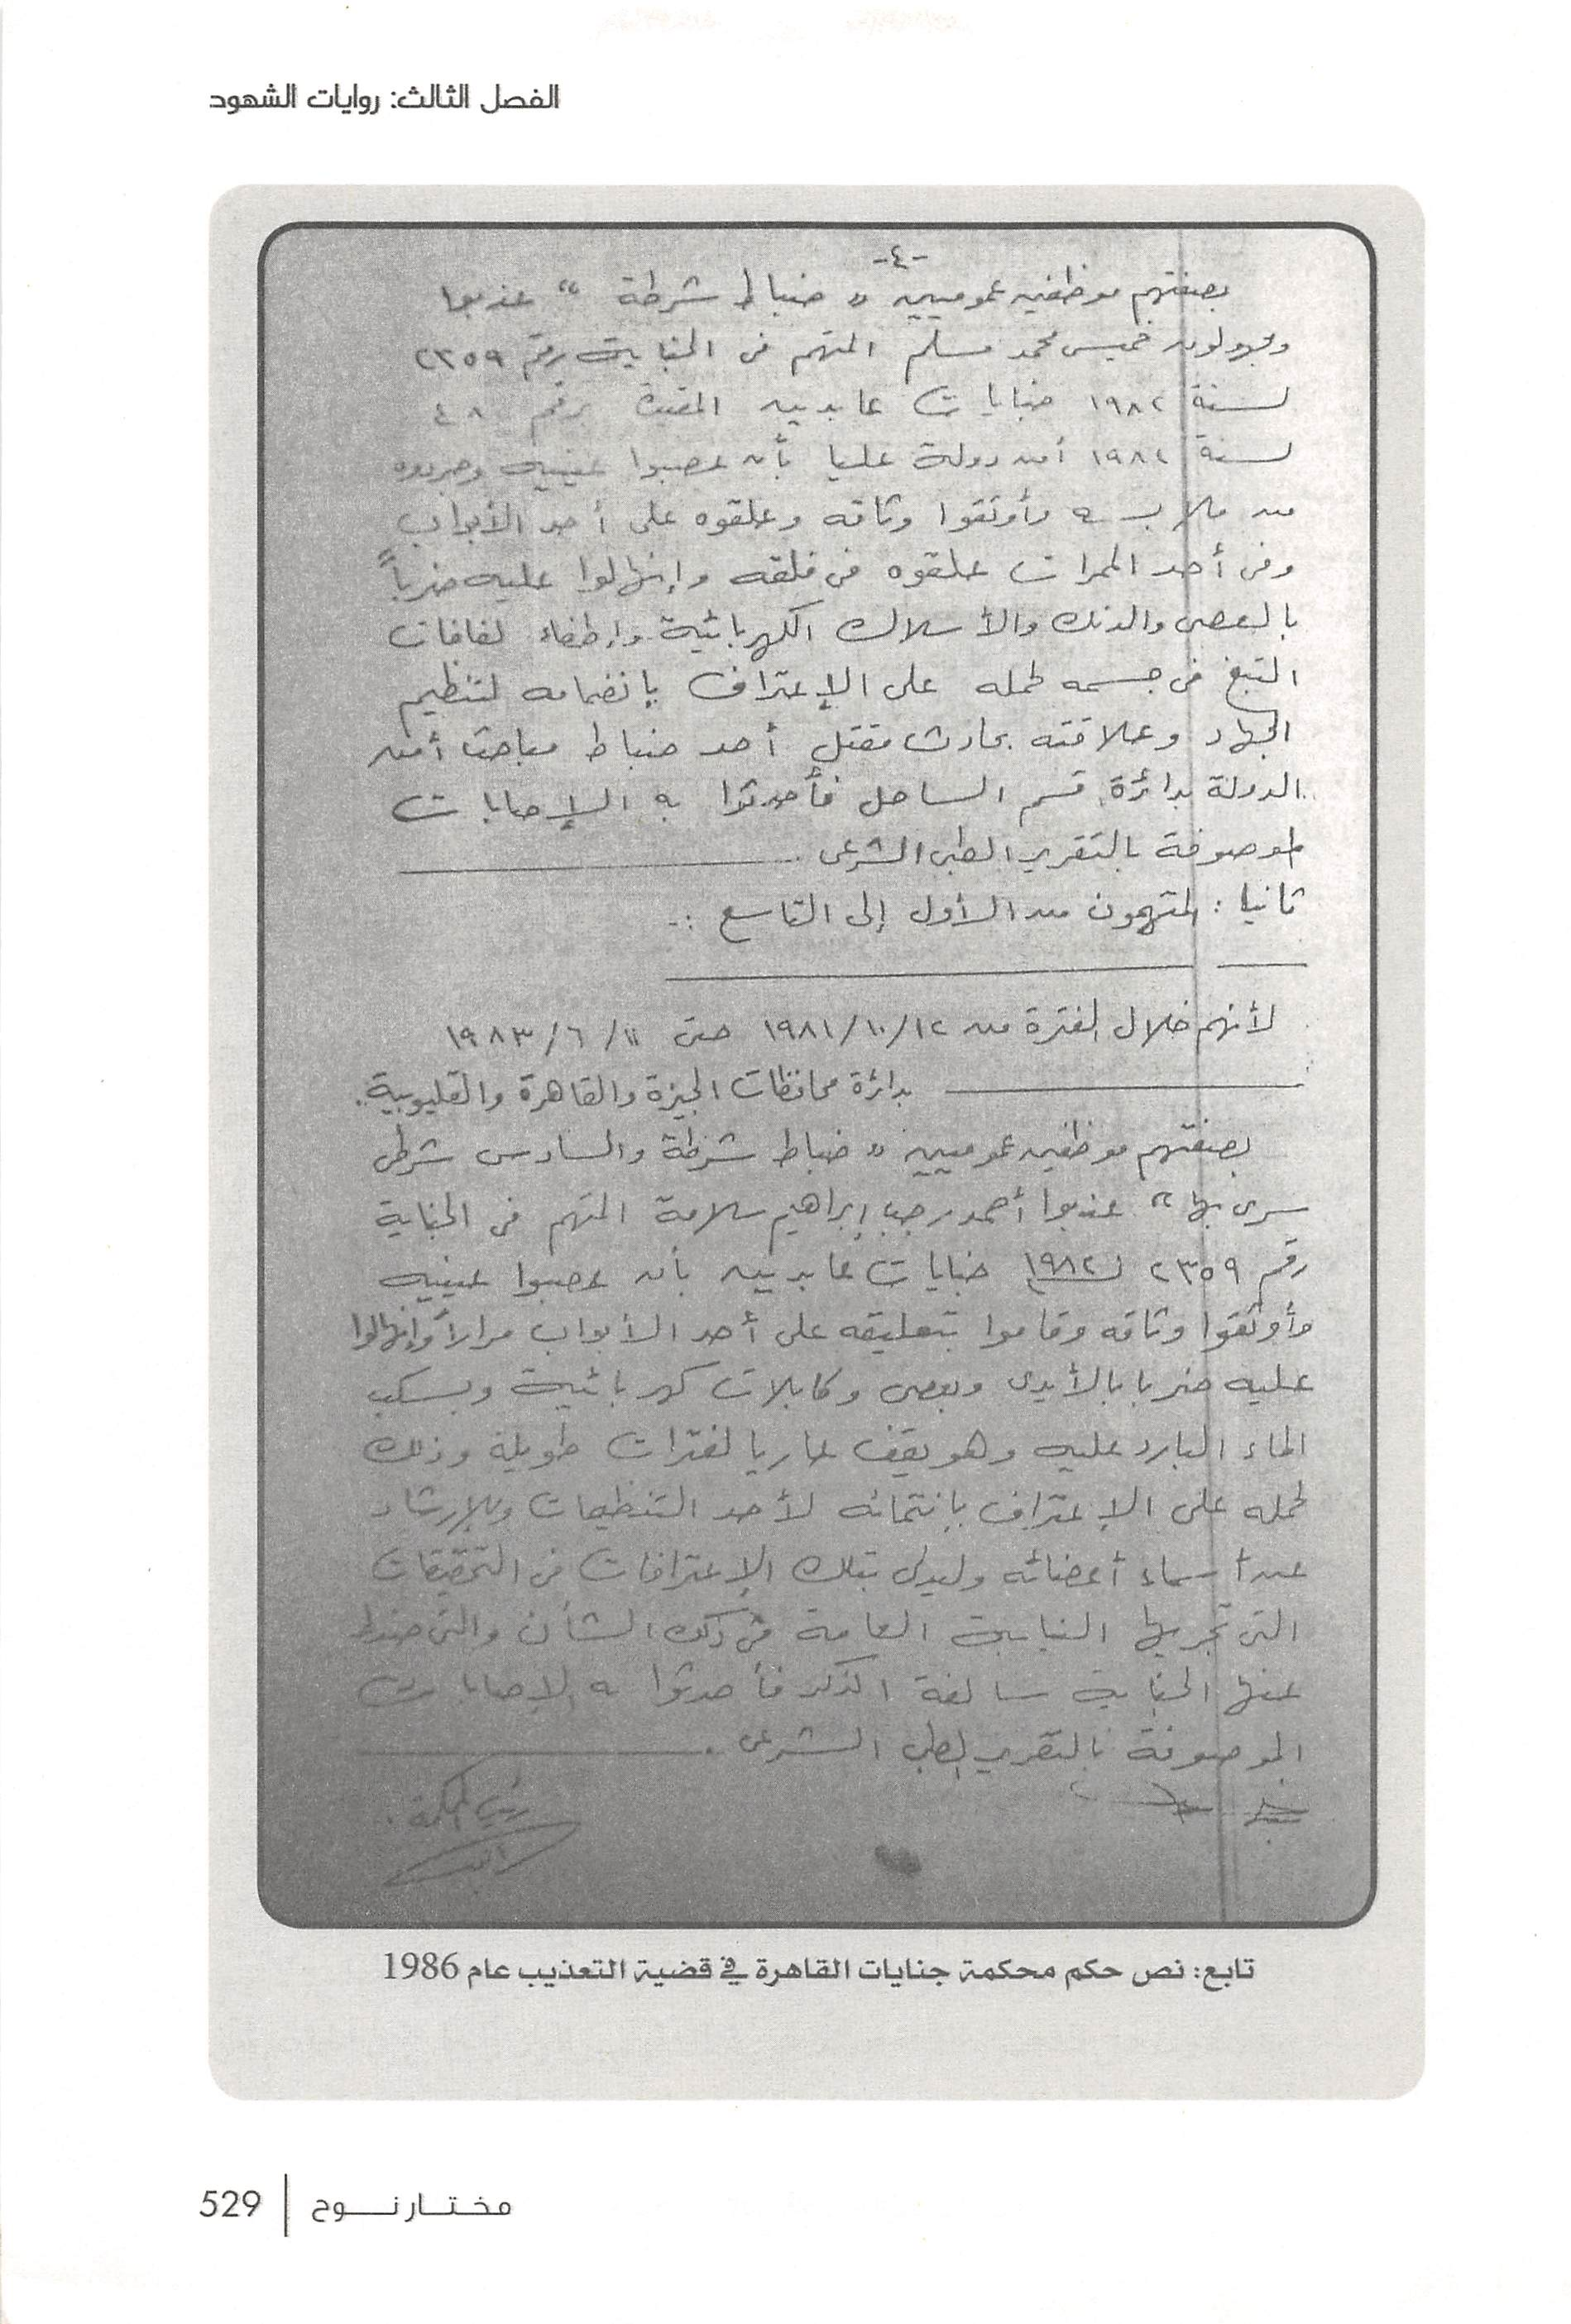 الفصل الثالث: روايات الشهود
-٤-
بصفتهم موظفين عموميين « ضباط شرطة » عذبوا
ومجهولون خميس محمد مسلم المتهم فى الجناية رقم ٢٣٥٩
لسنة ١٩٨٢ جنايات عابدين المقيدة برقم ٤٨
لسنة ١٩٨٢ أمن دولة عليا بأن عصبوا عينيه وجردوه
من ملابسه وأوثقوا وثاقه وعلقوه على أحد الأبواب
وفى أحد الممرات علقوه فى فلقه وإنهالوا عليه ضرباً
بالعصى والدنك والأسلاك الكهربائية وإطفاء لفافات
التبغ فى جسمه لحمله على الإعتراف بإنضمامه لتنظيم
الجهاد وعلاقته بحادث مقتل أحد ضباط مباحث أمن
الدولة بدائرة قسم الساحل فأحدثوا به الإصابات
الموصوفة بالتقرير الطبى الشرعى .
ثانيا : المتهمون من الأول إلى التاسع :-
لأنهم خلال الفترة من ١٩٨١/١٠/١٢ حتى ١١/ ٦/ ١٩٨٣
بدائرة محافظات الجيزة والقاهرة والقليوبية .
بصفتهم موظفين عموميين « ضباط شرطة والسادس شرطى
سرى بها » عذبوا أحمد رجب إبراهيم سلامة المتهم فى الجناية
رقم ٢٣٥٩ لسنة ١٩٨٢ جنايات عابدين بأن عصبوا عينيه
وأوثقوا وثاقه وقاموا بتعليقه على أحد الأبواب مراراً وإنهالوا
عليه ضربا بالأيدى وبعصى وكابلات كهربائية وبسكب
الماء البارد عليه وهو يقف عاريا لفترات طويلة وذلك
لحمله على الإعتراف بإنتمائه لأحد التنظيمات وللإرشاد
عن أسماء أعضائه وليدلى بتلك الإعترافات فى التحقيقات
التى تجريها النيابة العامة فى ذلك الشأن والتى
عنها الجناية سالفة الذكر فأحدثوا به الإصابات
الموصوفة بالتقرير الطبى الشرعى .
رئيس المحكمة .
تابع: نص حكم محكمة جنايات القاهرة في قضية التعذيب عام 1986
مختار نوح | 529